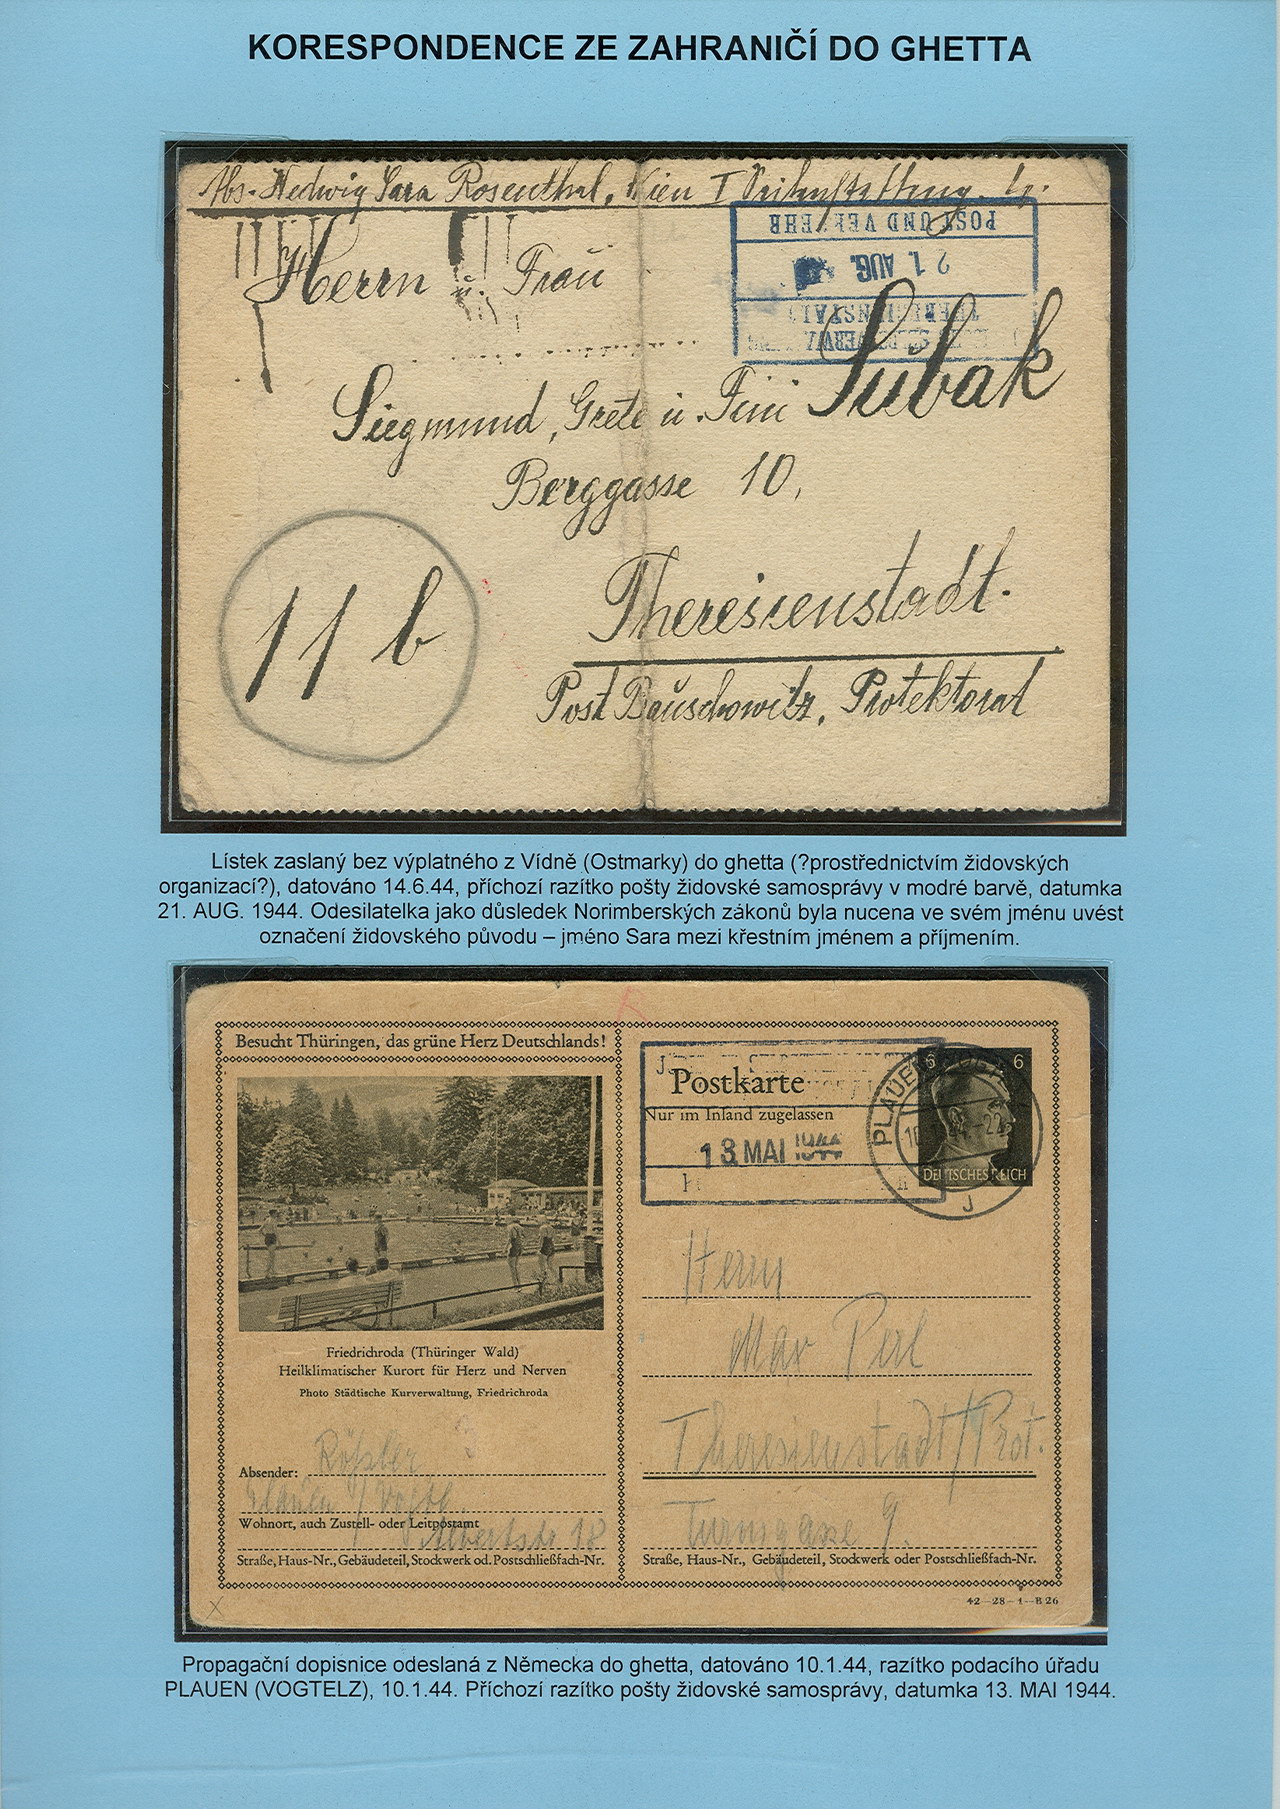 KORESPONDENCE ZE ZAHRANIČÍ DO GHETTA
Abs. Hedwig Sara Rosenthal, Wien I
POST UND VERKEHR
21. AUG.
THERESIENSTADT
Herrn u. Frau
Siegmund, Grete u. Fini Subak
Berggasse 10,
11 b
Theresienstadt.
Post Bauschowitz, Protektorat
Lístek zaslaný bez výplatného z Vídně (Ostmarky) do ghetta (?prostřednictvím židovských
organizací?), datováno 14.6.44, příchozí razítko pošty židovské samosprávy v modré barvě, datumka
21. AUG. 1944. Odesilatelka jako důsledek Norimberských zákonů byla nucena ve svém jménu uvést
označení židovského původu – jméno Sara mezi křestním jménem a příjmením.
Besucht Thüringen, das grüne Herz Deutschlands!
Postkarte
Nur im Inland zugelassen
13. MAI 1944
PLAUEN
6 6
DEUTSCHES REICH
J
Herrn
Max Perl
Theresienstadt/Prot.
Turmgasse 9.
Straße, Haus-Nr., Gebäudeteil, Stockwerk oder Postschließfach-Nr.
Friedrichroda (Thüringer Wald)
Heilklimatischer Kurort für Herz und Nerven
Photo Städtische Kurverwaltung, Friedrichroda
Absender: Rößler
Plauen / Vogtl.
Wohnort, auch Zustell- oder Leitpostamt
Albertstr 18
Straße, Haus-Nr., Gebäudeteil, Stockwerk od. Postschließfach-Nr.
42—28—1—B 26
Propagační dopisnice odeslaná z Německa do ghetta, datováno 10.1.44, razítko podacího úřadu
PLAUEN (VOGTELZ), 10.1.44. Příchozí razítko pošty židovské samosprávy, datumka 13. MAI 1944.